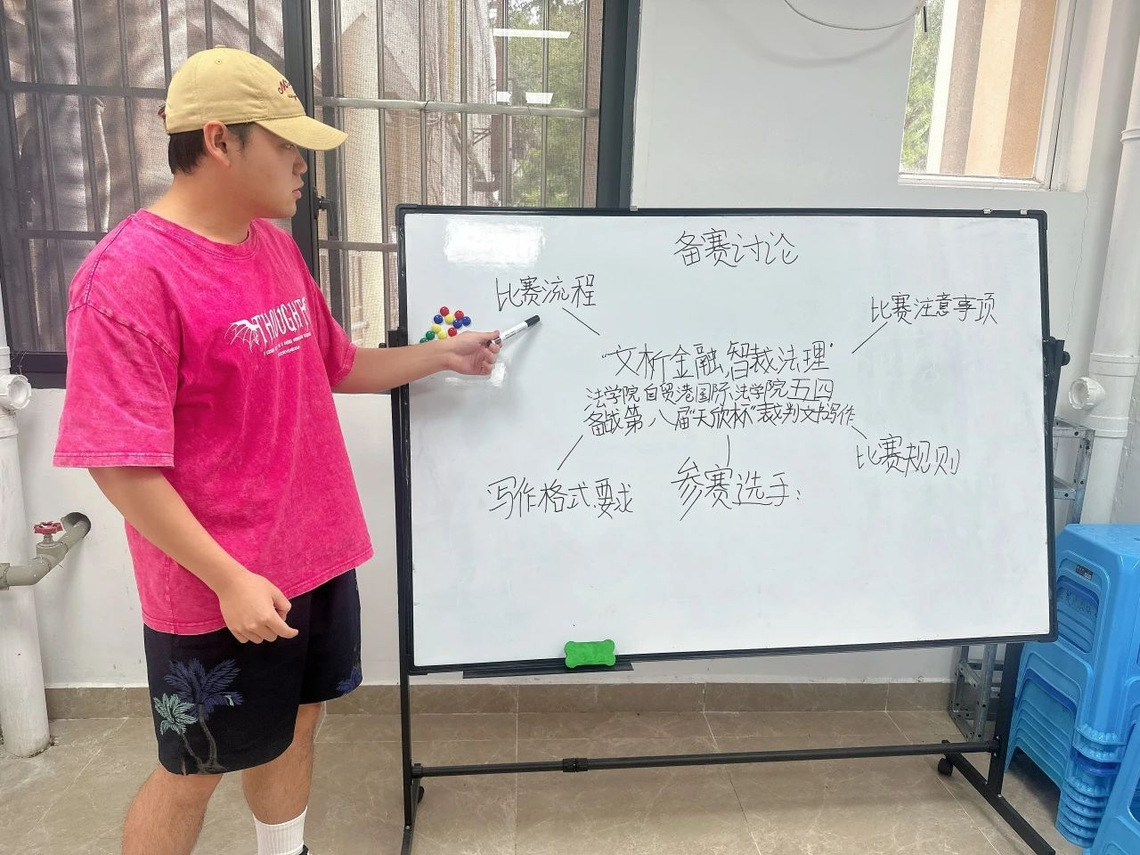 备赛讨论
比赛流程
比赛注意事项
"文析金融,智裁法理"
法学院 自贸港国际法学院 五四
备战第八届"天欣杯"裁判文书写作
比赛规则
写作格式要求
参赛选手:
THOUGHT